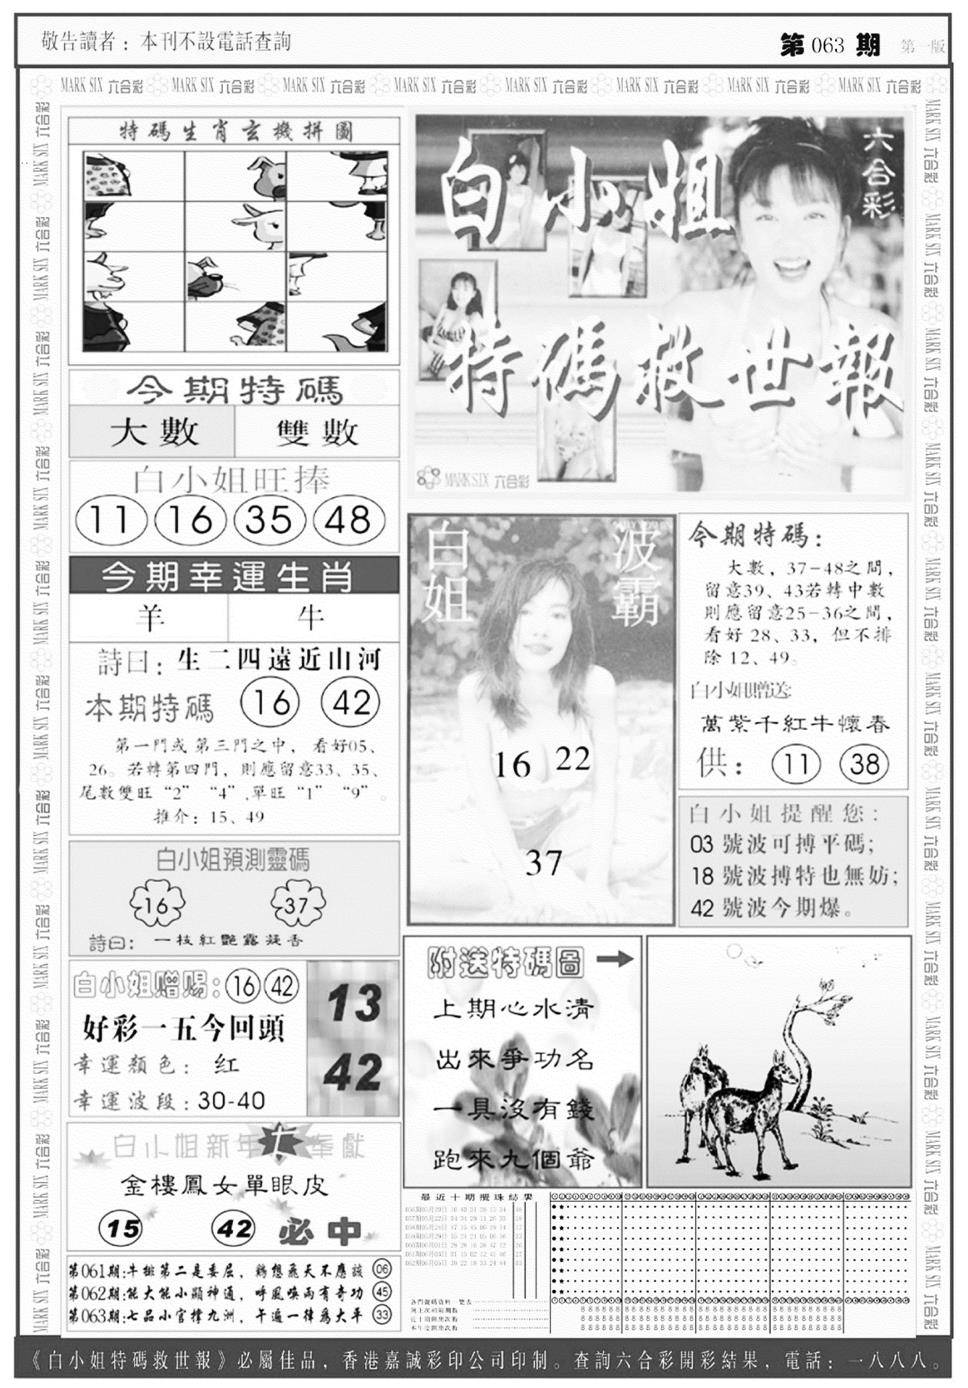 敬告讀者：本刊不設電話查詢
第 063 期 第一版
MARK SIX 六合彩 MARK SIX 六合彩 MARK SIX 六合彩 MARK SIX 六合彩 MARK SIX 六合彩 MARK SIX 六合彩 MARK SIX 六合彩 MARK SIX 六合彩
特碼生肖玄機拼圖
六合彩
白小姐
特碼救世報
MARK SIX 六合彩
今期特碼
大數 雙數
白小姐旺捧
11 16 35 48
今期幸運生肖
羊 牛
詩曰：生二四遠近山河
本期特碼 16 42
第一門或第三門之中，看好05、
26。若轉第四門，則應留意33、35、
尾數雙旺“2”“4”,單旺“1”“9”。
推介：15、49
白小姐預測靈碼
16 37
詩曰：一枝紅艷露凝香
白小姐赠赐：16 42
好彩一五今回頭
幸運顏色：红
幸運波段：30-40
13
42
白小姐新年 奉獻
金樓鳳女單眼皮
15 42 必中
第061期:牛排第二是委屈，鷄想飛天不應該 06
第062期:能大能小顯神通，呼風喚雨有奇功 45
第063期:七品小官撑九洲，午逼一律爲大平 33
白姐
波霸
16 22
37
今期特碼：
大數，37-48之間，
留意39、43若轉中數
則應留意25-36之間，
看好 28、33，但不排
除 12、49。
白小姐贈送:
萬紫千紅牛懷春
供： 11 38
白小姐提醒您：
03 號波可搏平碼；
18 號波搏特也無妨；
42 號波今期爆。
附送特碼圖
上期心水清
出來爭功名
一具沒有錢
跑來九個爺
最近十期攪珠結果
《白小姐特碼救世報》必屬佳品，香港嘉誠彩印公司印制。查詢六合彩開彩結果，電話：一八八八。